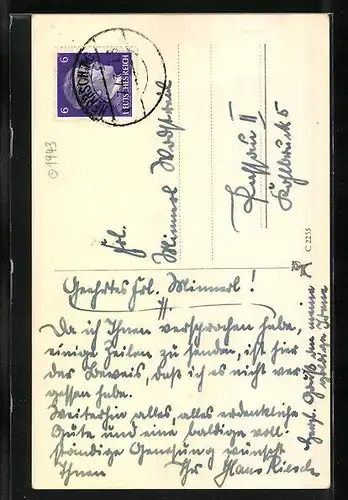 6
6
DEUTSCHES REICH
1943
Frl.
Minnerl
Passau II
C 2235
Geehrtes Frl. Minnerl!
Da ich Ihnen versprochen habe,
einige Zeilen zu senden, ist hier
der Beweis, daß ich es nicht ver-
gessen habe.
Weiterhin alles, alles erdenkliche
Gute und eine baldige voll-
ständige Genesung wünscht
Ihnen
Ihr Hans
Herzl. Gruß an meine
goldige Irene